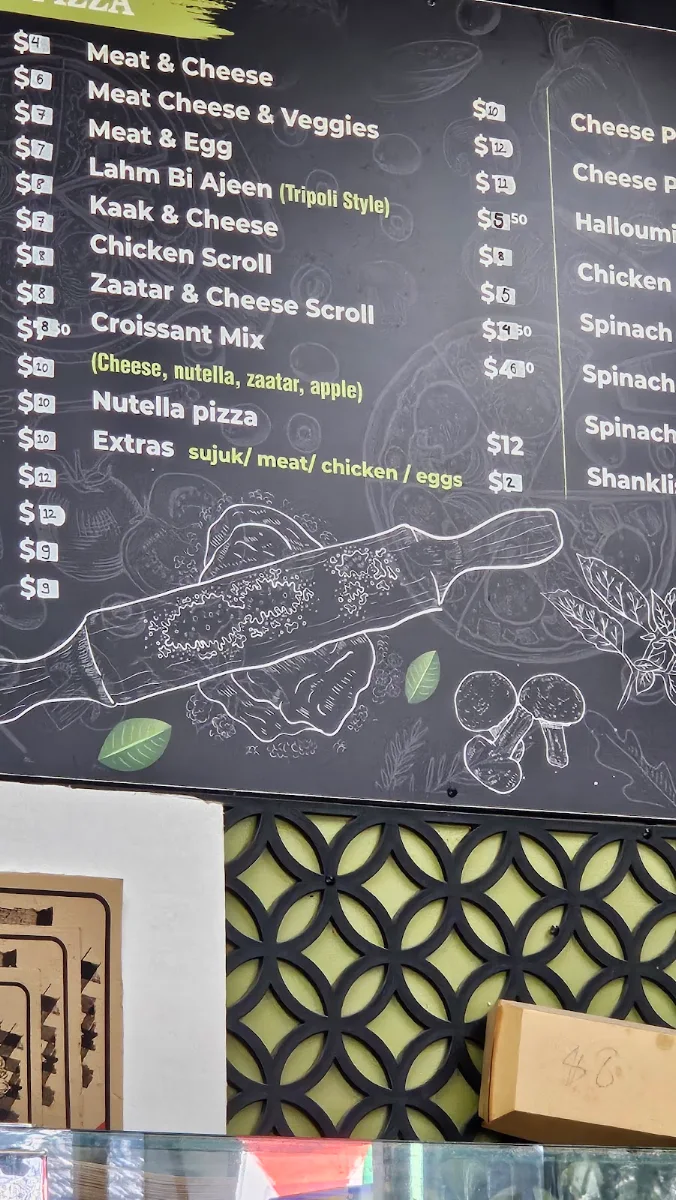 PIZZA
$4
$6
$7
$7
$8
$7
$8
$8
$8
$10
$10
$10
$12
$12
$9
$9
Meat & Cheese $10
Meat Cheese & Veggies $12
Meat & Egg $11
Lahm Bi Ajeen (Tripoli Style) $5.50
Kaak & Cheese $8
Chicken Scroll $5
Zaatar & Cheese Scroll $4.50
Croissant Mix $6
(Cheese, nutella, zaatar, apple)
Nutella pizza $12
Extras sujuk/ meat/ chicken / eggs $2
Cheese P
Cheese P
Halloumi
Chicken
Spinach
Spinach
Spinach
Shanklis
$6